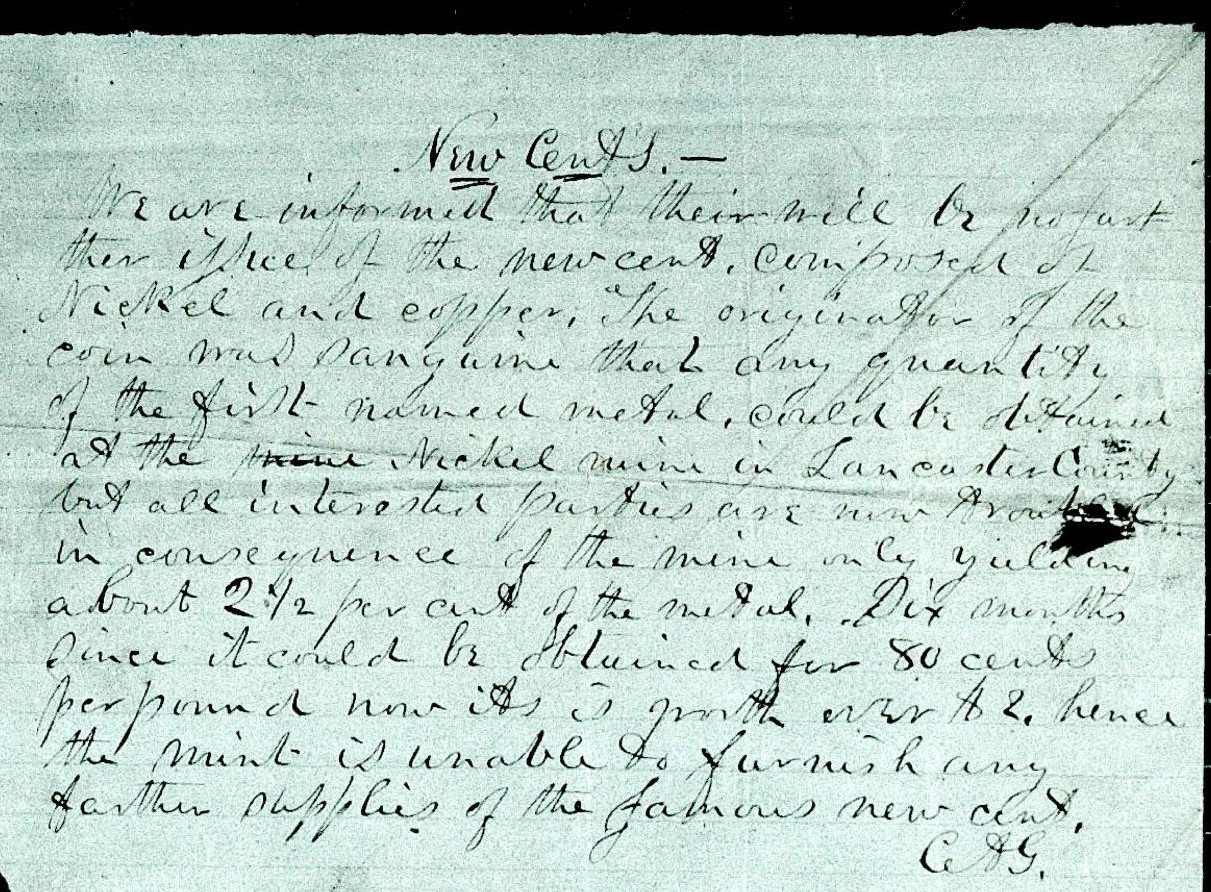 New Cents. —
We are informed that their will be no fart
ther issue of the new cent, composed of
Nickel and copper, The originator of the
coin was sanguine that any quantity
of the first named metal, could be obtained
at the mine Nickel mine in Lancaster County
but all interested parties are now
in consequence of the mine only yielding
about 2 1/2 per cent of the metal. Six months
since it could be obtained for 80 cents
per pound now its is worth over $2. hence
the mint is unable to furnish any
farther supplies of the famous new cent.
CAG.